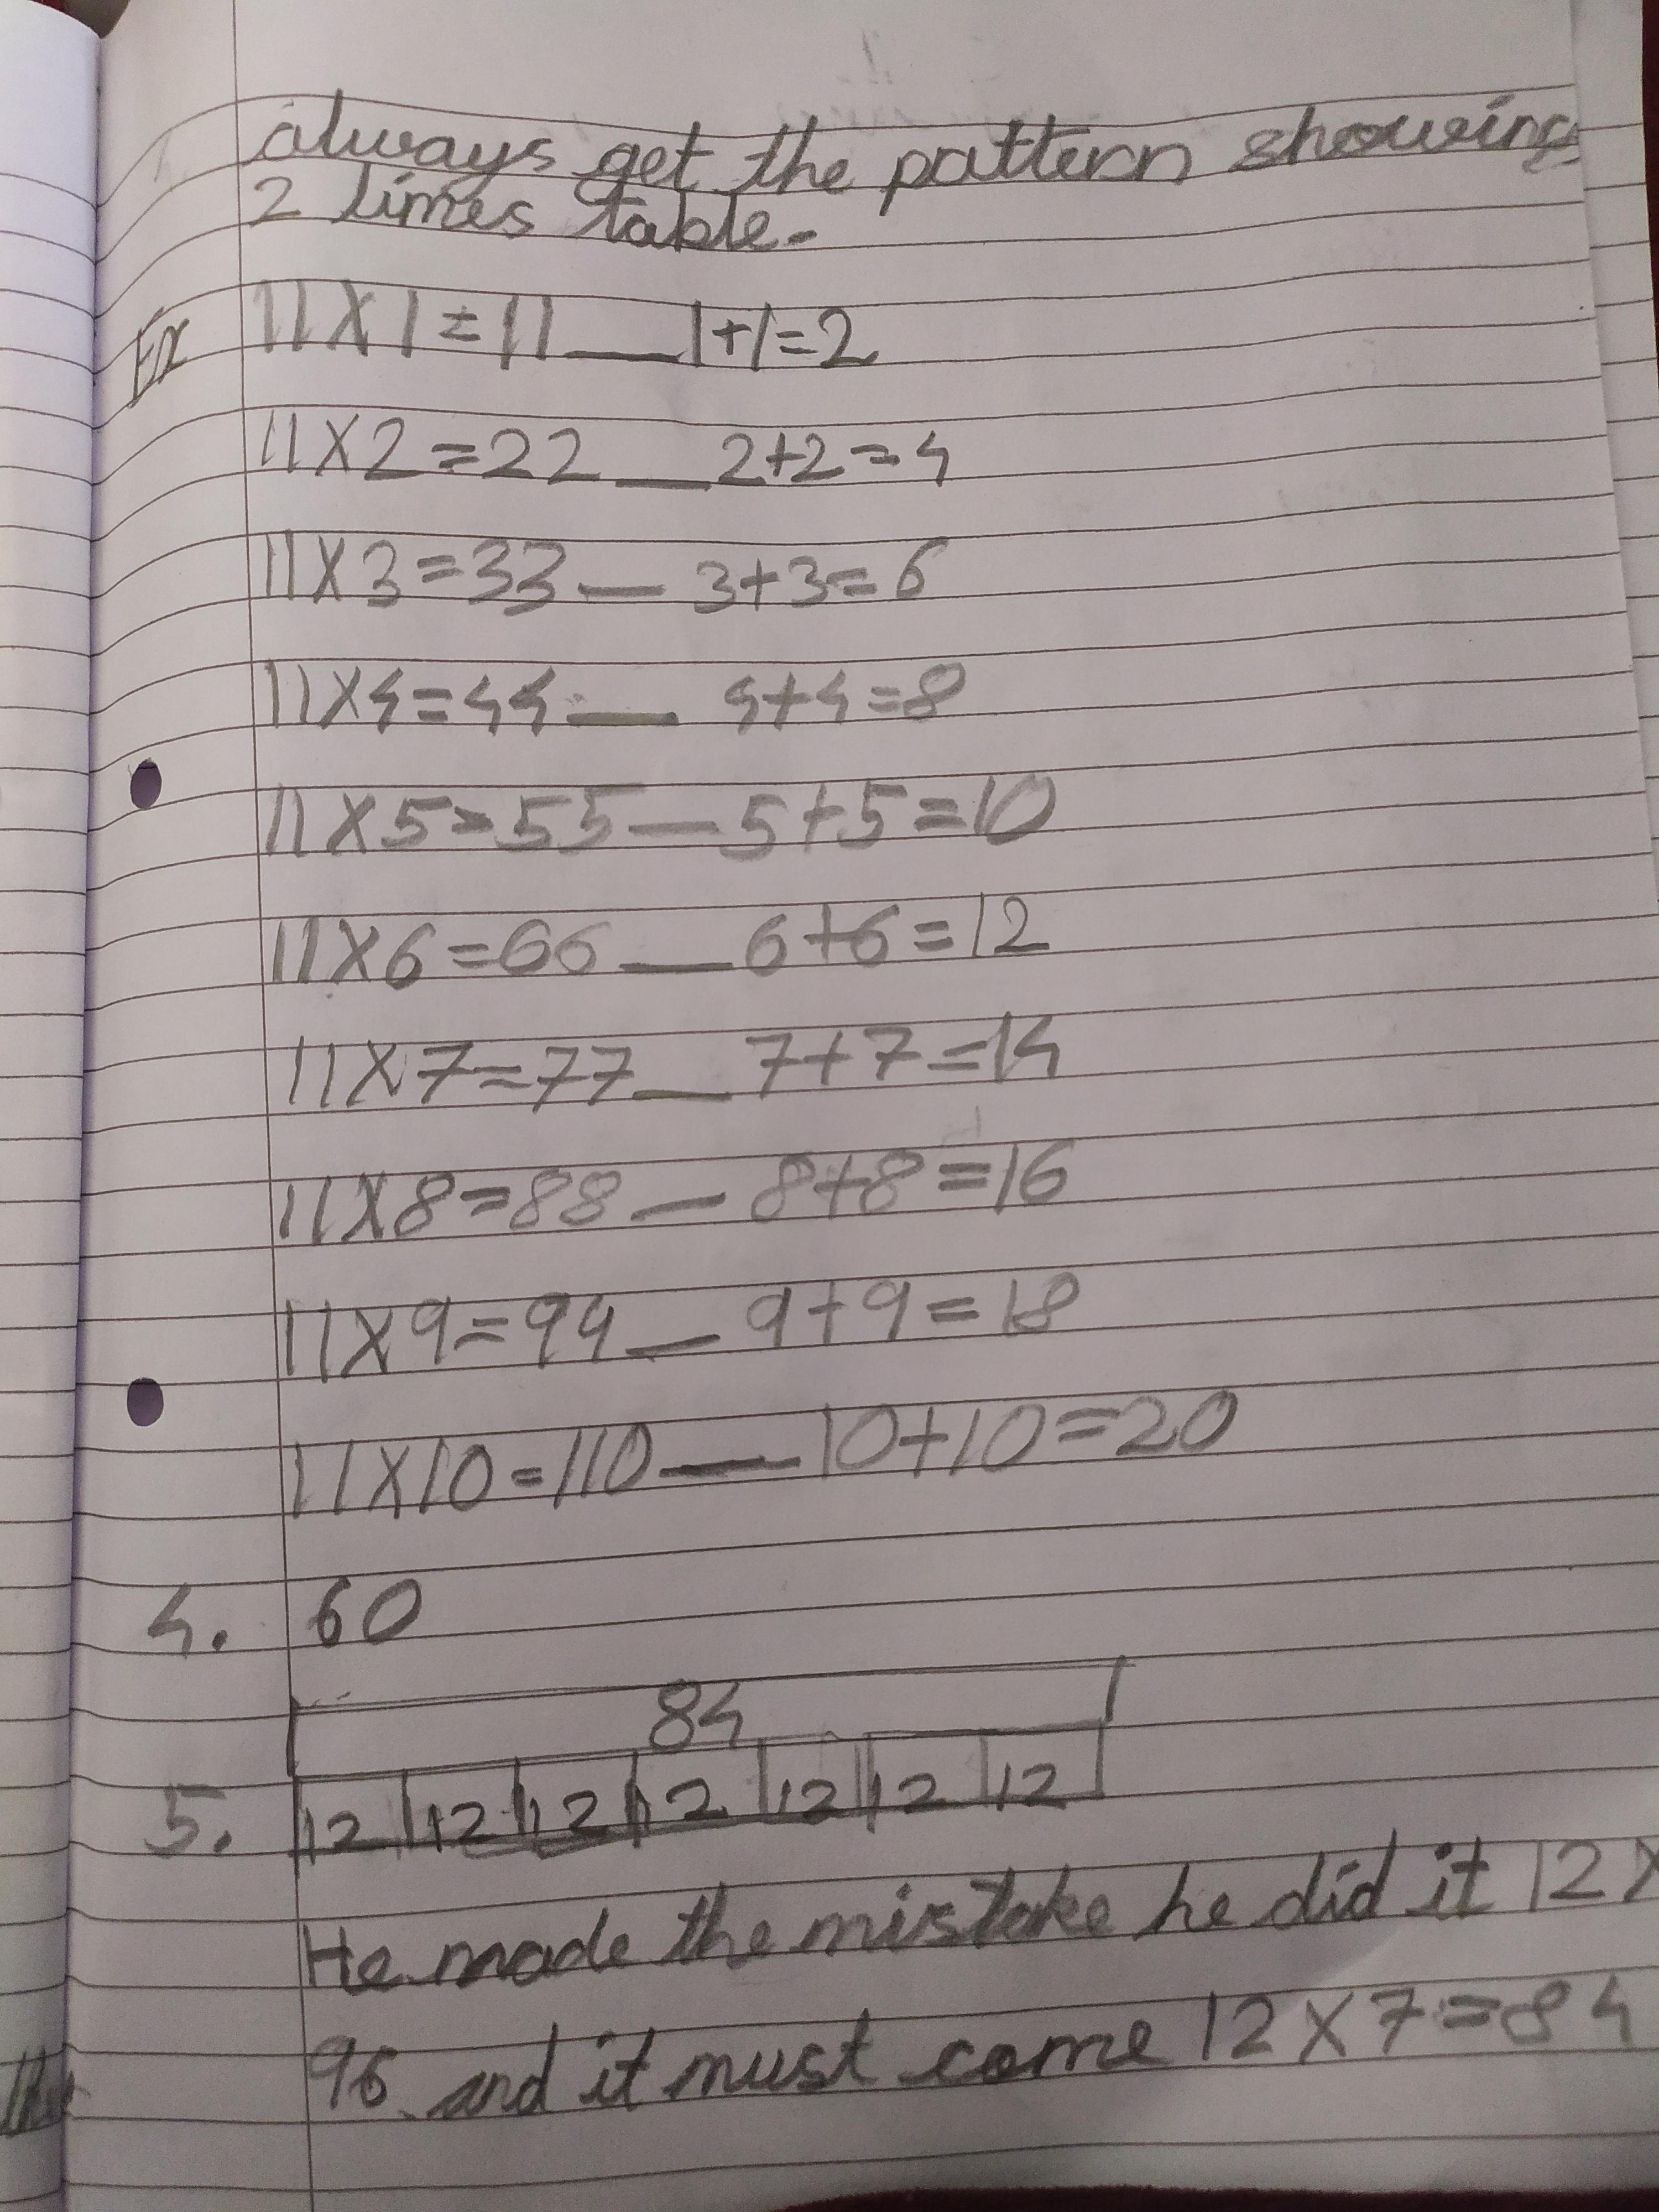 always get the pattern showing
2 times table.
Ex 11X1=11 __ 1+1=2
11X2=22 __ 2+2=4
11X3=33 — 3+3=6
11X4=44 — 4+4=8
11X5=55 — 5+5=10
11X6=66 __ 6+6=12
11X7=77 __ 7+7=14
11X8=88 — 8+8=16
11X9=99 __ 9+9=18
11X10=110 — 10+10=20
4. 60
84
5. 12 12 12 12 12 12 12
He made the mistake he did it 12X
96 and it must come 12X7=84